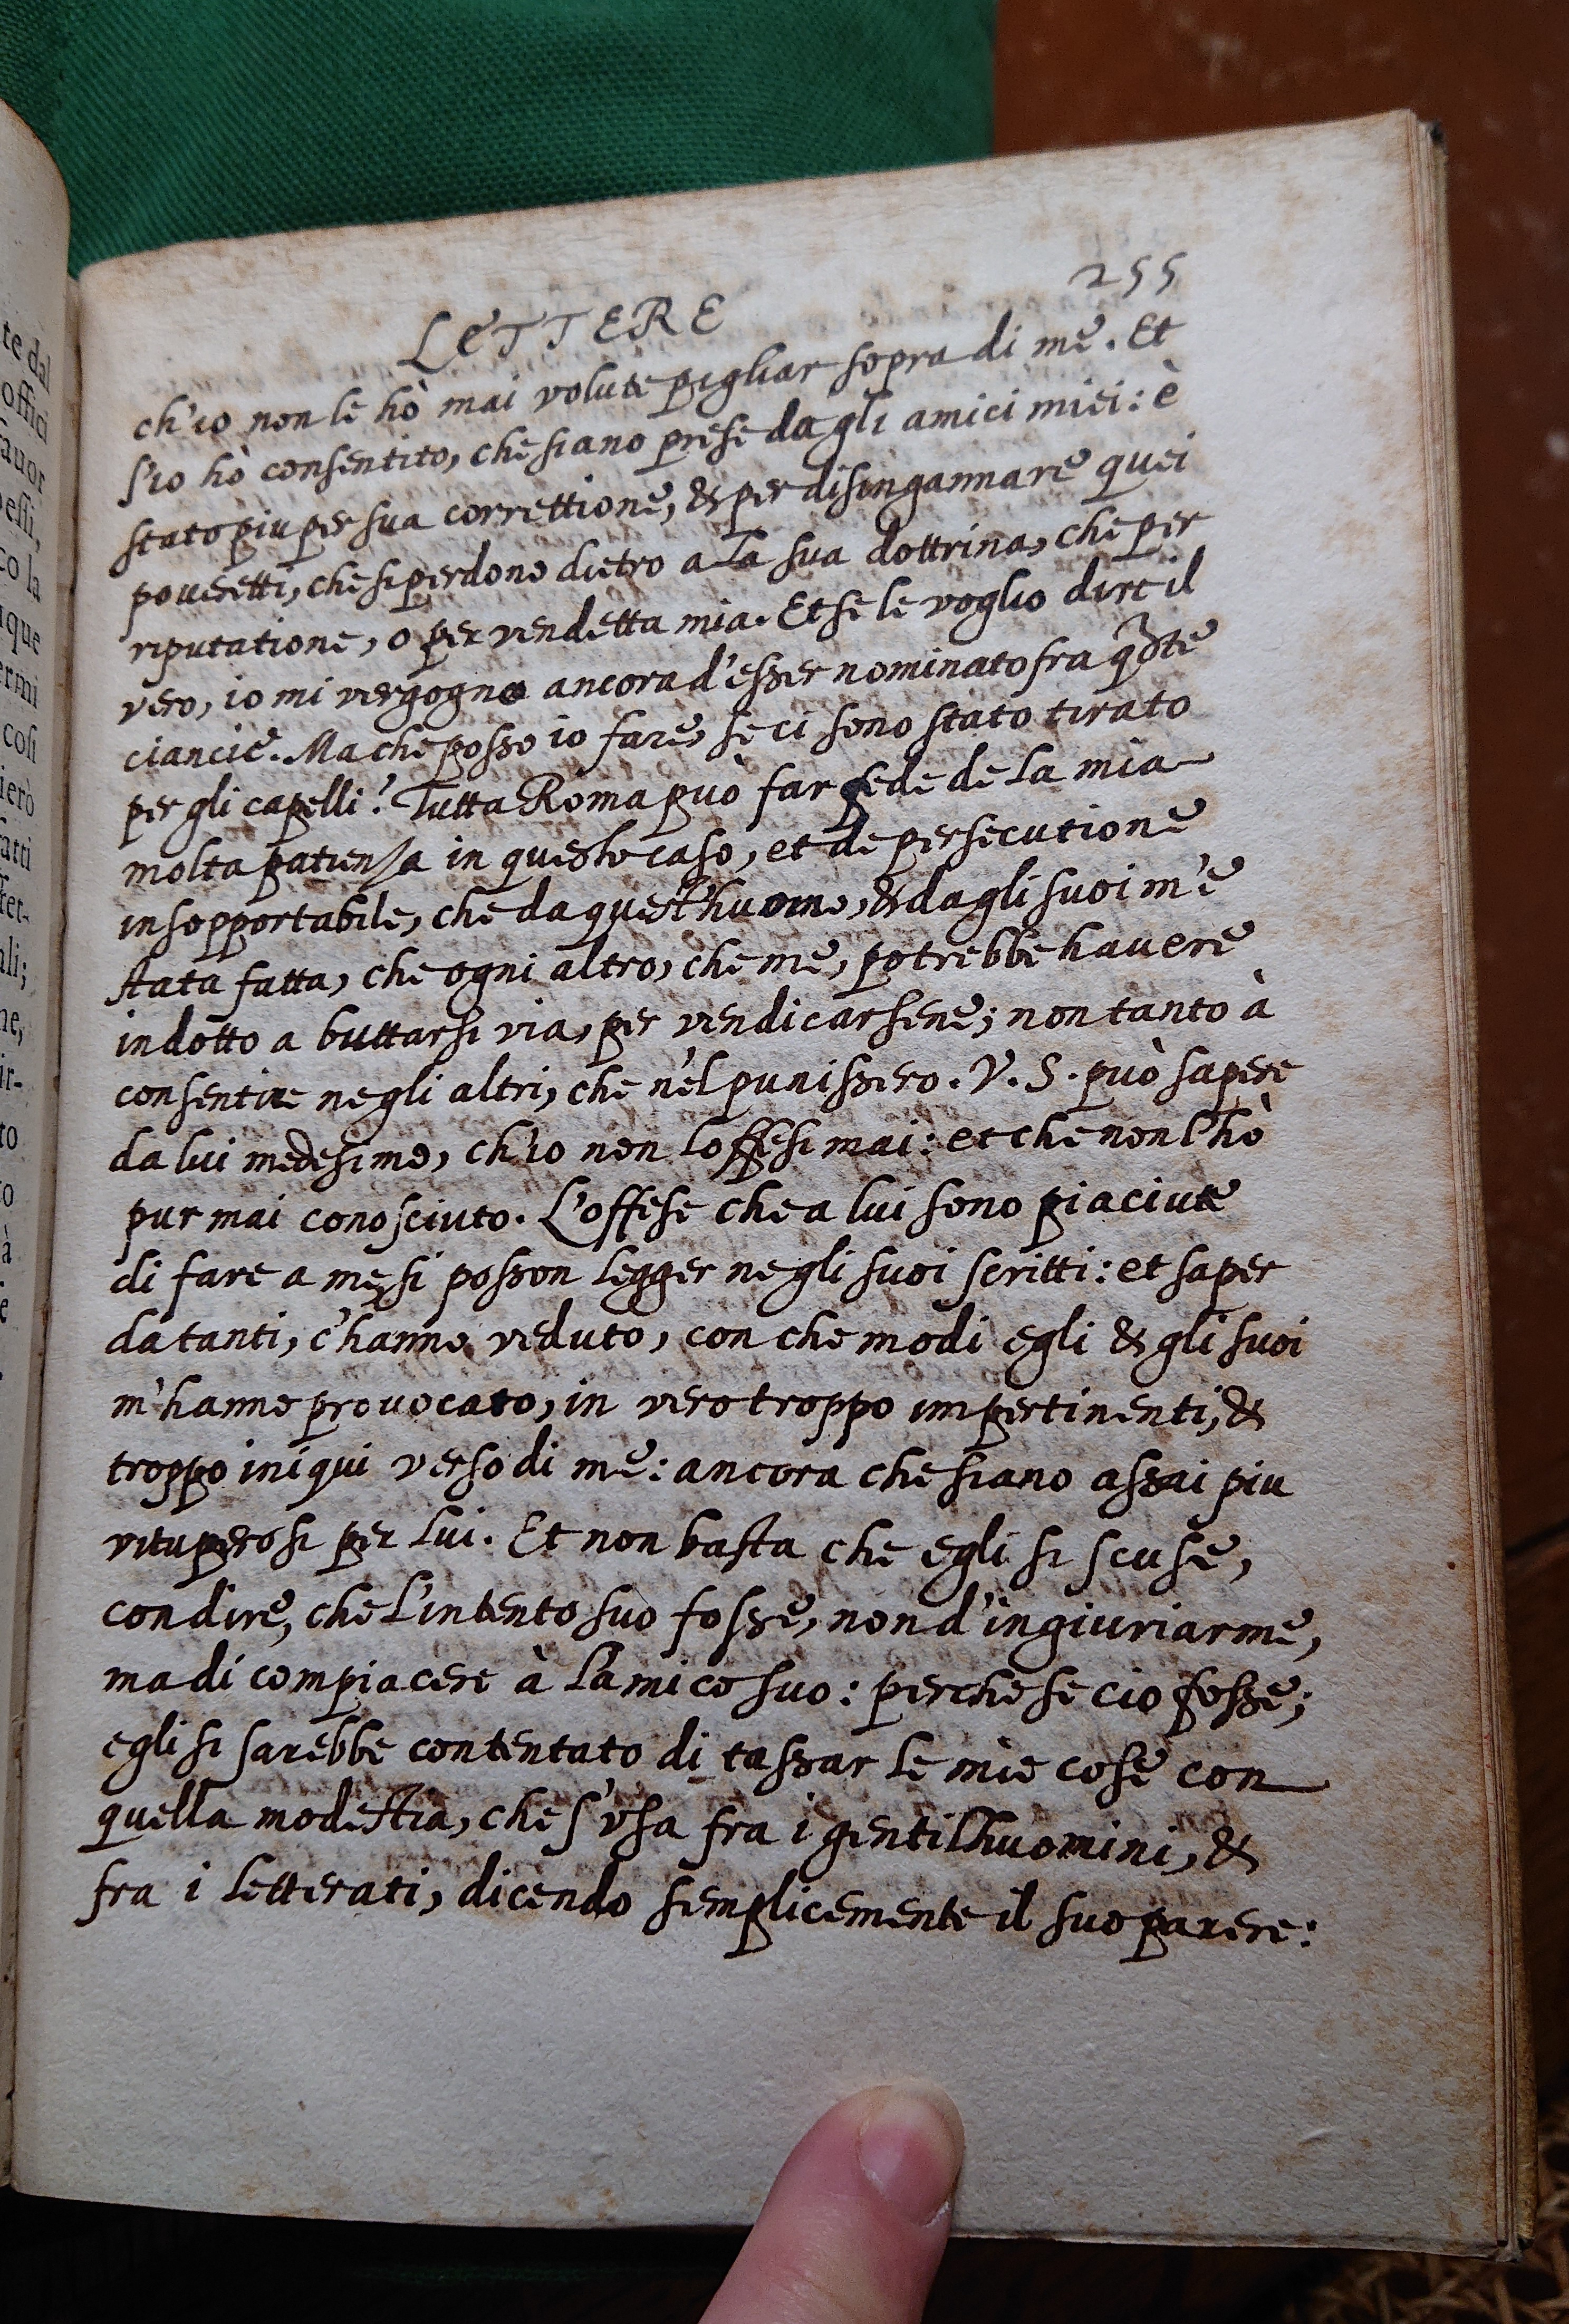 te dal
offici
auor
essi,
co la
que
rini
cosi
ierò
atti
ret-
ali;
ne,
ir-
to
o
à
e
LETTERE 255
ch'io non le hò mai volute pigliar sopra di me. Et
s'io hò consentito, che siano prese da gli amici miei: è
stato piu per sua correttione, & per disingannare quei
poueretti, che si perdono dietro a la sua dottrina, che per
riputatione, o per vendetta mia. Et se le voglio dire il
vero, io mi vergogno ancora d'esser nominato fra q̃ste
ciancie. Ma che posso io fare, se ci sono stato tirato
per gli capelli? Tutta Roma può far fede de la mia
molta patienza in questo caso, et de persecutione
insopportabile, che da quest'huomo, & da gli suoi m'è
stata fatta, che ogni altro, che me, potrebbe hauere
indotto a buttarsi via, per vendicarsene; non tanto à
consentire ne gli altri, che n'el punissero. V. S. può sapere
da lui medesimo, ch'io non l'offesi mai: et che non l'hò
pur mai conosciuto. L'offese che a lui sono piaciute
di fare a me, si posson legger ne gli suoi scritti: et saper
da tanti, c'hanno veduto, con che modi egli & gli suoi
m'hanno prouocato, in vero troppo impertinenti, &
troppo iniqui verso di me: ancora che siano assai piu
vituperosi per lui. Et non basta che egli si scuse,
con dire, che l'intento suo fosse, non d'ingiuriarme,
ma di compiacere à l'amico suo: perche se cio fosse;
egli si sarebbe contentato di tassar le mie cose con
quella modestia, che s'vsa fra i gentilhuomini, &
fra i letterati, dicendo semplicemente il suo parere: